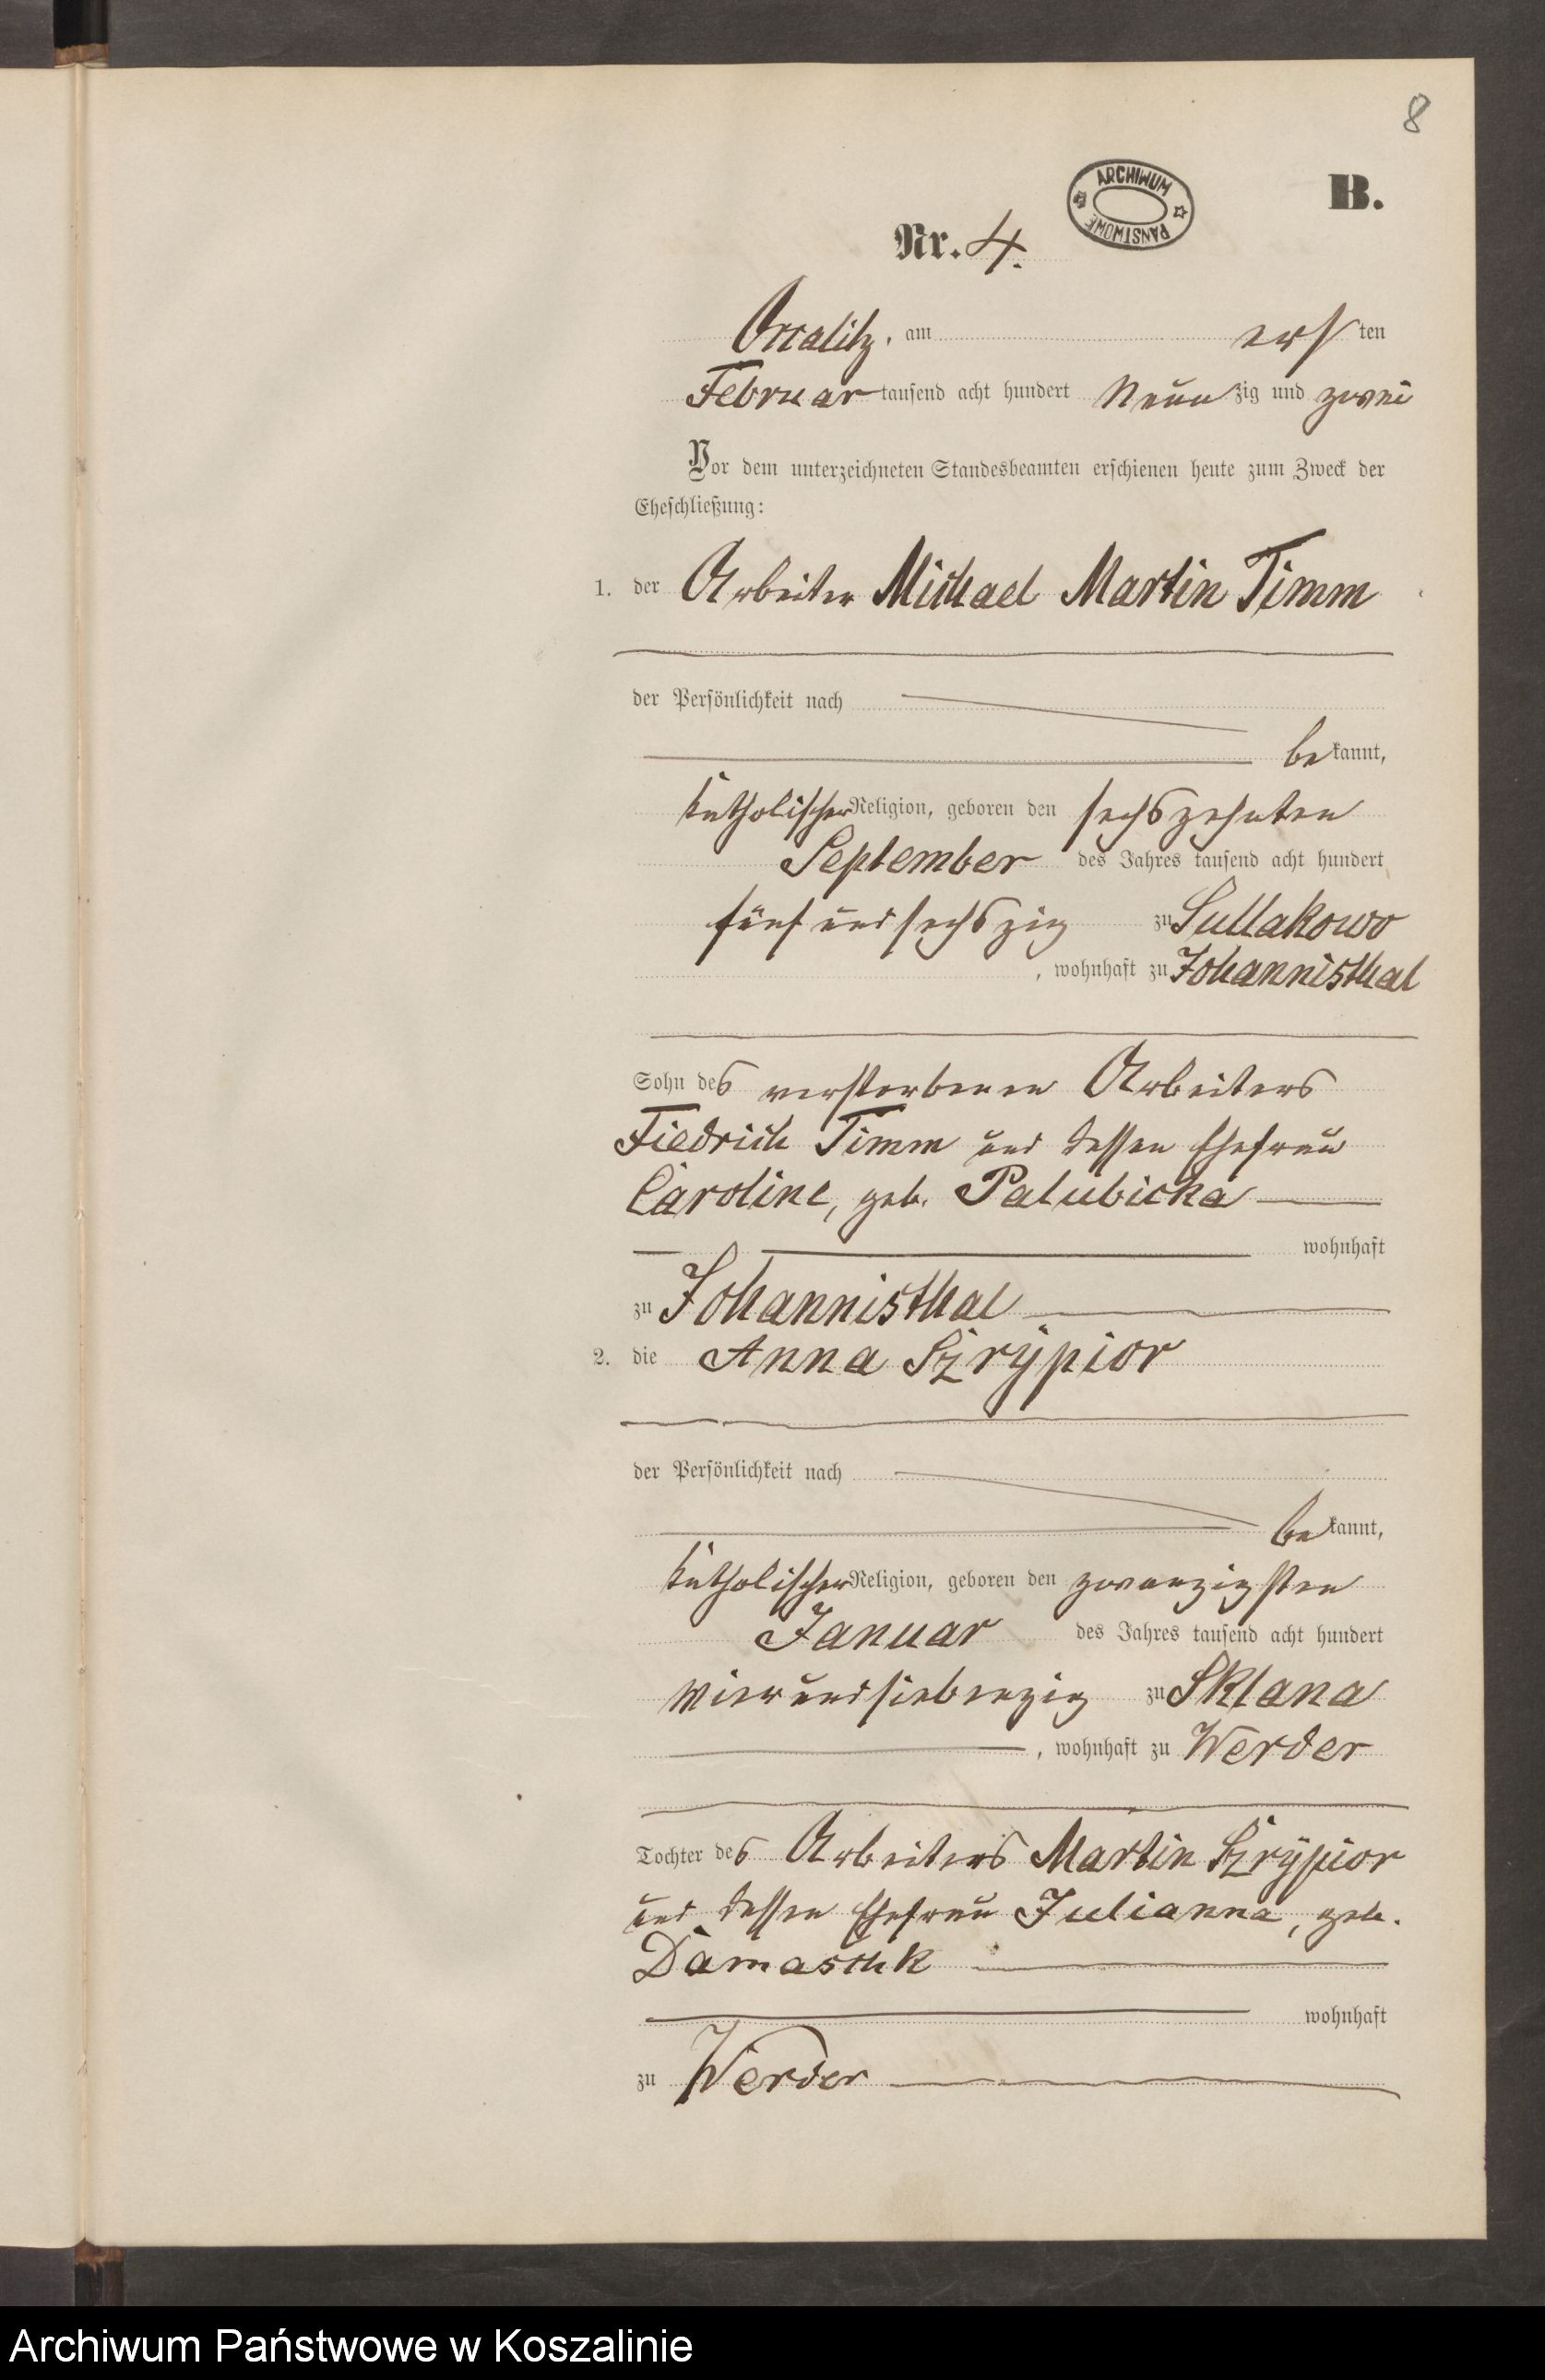 8
ARCHIWUM PAŃSTWOWE
B.
Nr. 4.
am ersten
Februar tausend acht hundert neunzig und zwei
Vor dem unterzeichneten Standesbeamten erschienen heute zum Zweck der
Eheschließung:
1. der Arbeiter Michael Martin Timm
der Persönlichkeit nach
bekannt,
katholischer Religion, geboren den sechszehnten
September des Jahres tausend acht hundert
fünf und sechszig zu Sullakowo
, wohnhaft zu Johannisthal
Sohn des verstorbenen Arbeiters
Fiedrich Timm und dessen Ehefrau
Caroline, geb. Palubicka
wohnhaft
zu Johannisthal
2. die Anna Szrypior
der Persönlichkeit nach
bekannt,
katholischer Religion, geboren den zwanzigsten
Januar des Jahres tausend acht hundert
vier und siebenzig zu Sklana
, wohnhaft zu Werder
Tochter des Arbeiters Martin Szrypior
und dessen Ehefrau Julianna, geb.
Damaschk
wohnhaft
zu Werder
Archiwum Państwowe w Koszalinie